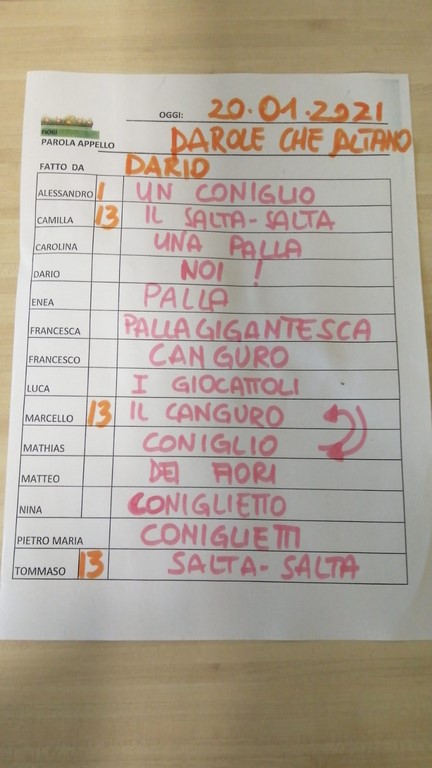 OGGI: 20.01.2021
FIORI
PAROLA APPELLO PAROLE CHE SALTANO
FATTO DA DARIO
ALESSANDRO 1 UN CONIGLIO
CAMILLA 13 IL SALTA-SALTA
CAROLINA UNA PALLA
DARIO NOI !
ENEA PALLA
FRANCESCA PALLA GIGANTESCA
FRANCESCO CANGURO
LUCA I GIOCATTOLI
MARCELLO 13 IL CANGURO
MATHIAS CONIGLIO
MATTEO DEI FIORI
NINA CONIGLIETTO
PIETRO MARIA CONIGLIETTI
TOMMASO 13 SALTA-SALTA